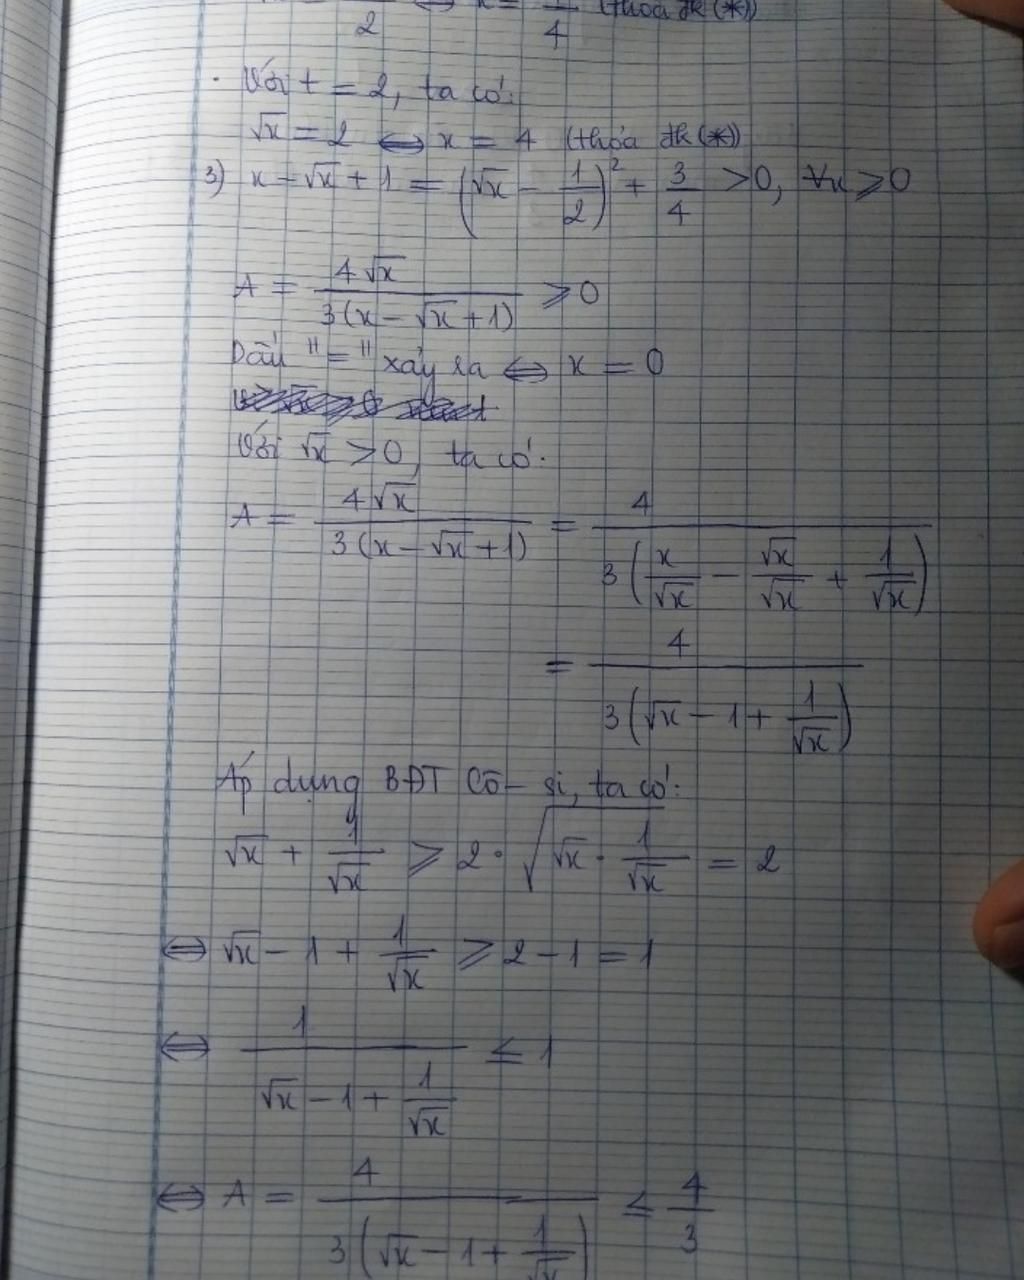 2 ⇔ x = 1/4 (thỏa đk (*))
. Với t = 2, ta có:
√x = 2 ⇔ x = 4 (thỏa đk (*))
3) x - √x + 1 = (√x - 1/2)² + 3/4 > 0, ∀x ⩾ 0
A = 4√x / 3(x - √x + 1) ⩾ 0
Dấu "=" xảy ra ⇔ x = 0
Với √x > 0, ta có:
A = 4√x / 3(x - √x + 1) = 4 / 3(x/√x - √x/√x + 1/√x)
= 4 / 3(√x - 1 + 1/√x)
Áp dụng BĐT Cô-si, ta có:
√x + 1/√x ⩾ 2 · √(√x · 1/√x) = 2
⇔ √x - 1 + 1/√x ⩾ 2 - 1 = 1
⇔ 1 / (√x - 1 + 1/√x) ≤ 1
⇔ A = 4 / 3(√x - 1 + 1/√x) ≤ 4/3